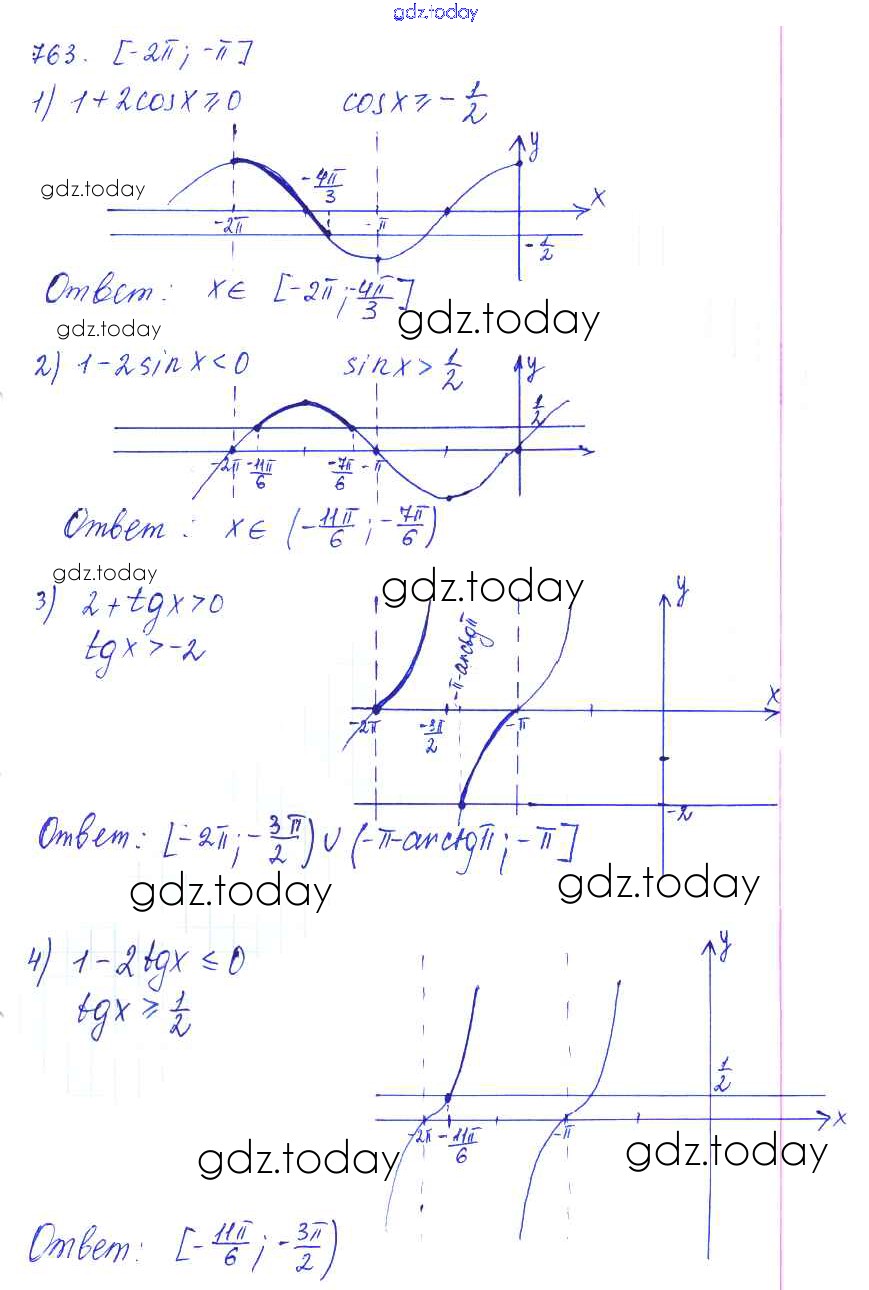 gdz.today
763. [-2π; -π]
1) 1+2cosx ≥ 0 cosx ≥ -1/2
y
gdz.today
-4π/3
x
-2π -π
-1/2
Ответ: x∈ [-2π; -4π/3]
gdz.today
gdz.today
2) 1-2sinx < 0 sinx > 1/2
y
1/2
-2π -11π/6 -7π/6 -π
Ответ: x∈ (-11π/6; -7π/6)
gdz.today
gdz.today
3) 2+tgx>0
y
tgx>-2
-π-arctgπ
x
-2π -3π/2 -π
-2
Ответ: [-2π; -3π/2) ∪ (-π-arctgπ; -π]
gdz.today
gdz.today
4) 1-2tgx ≤ 0
y
tgx ≥ 1/2
1/2
-2π -11π/6 -π x
gdz.today
gdz.today
Ответ: [-11π/6; -3π/2)